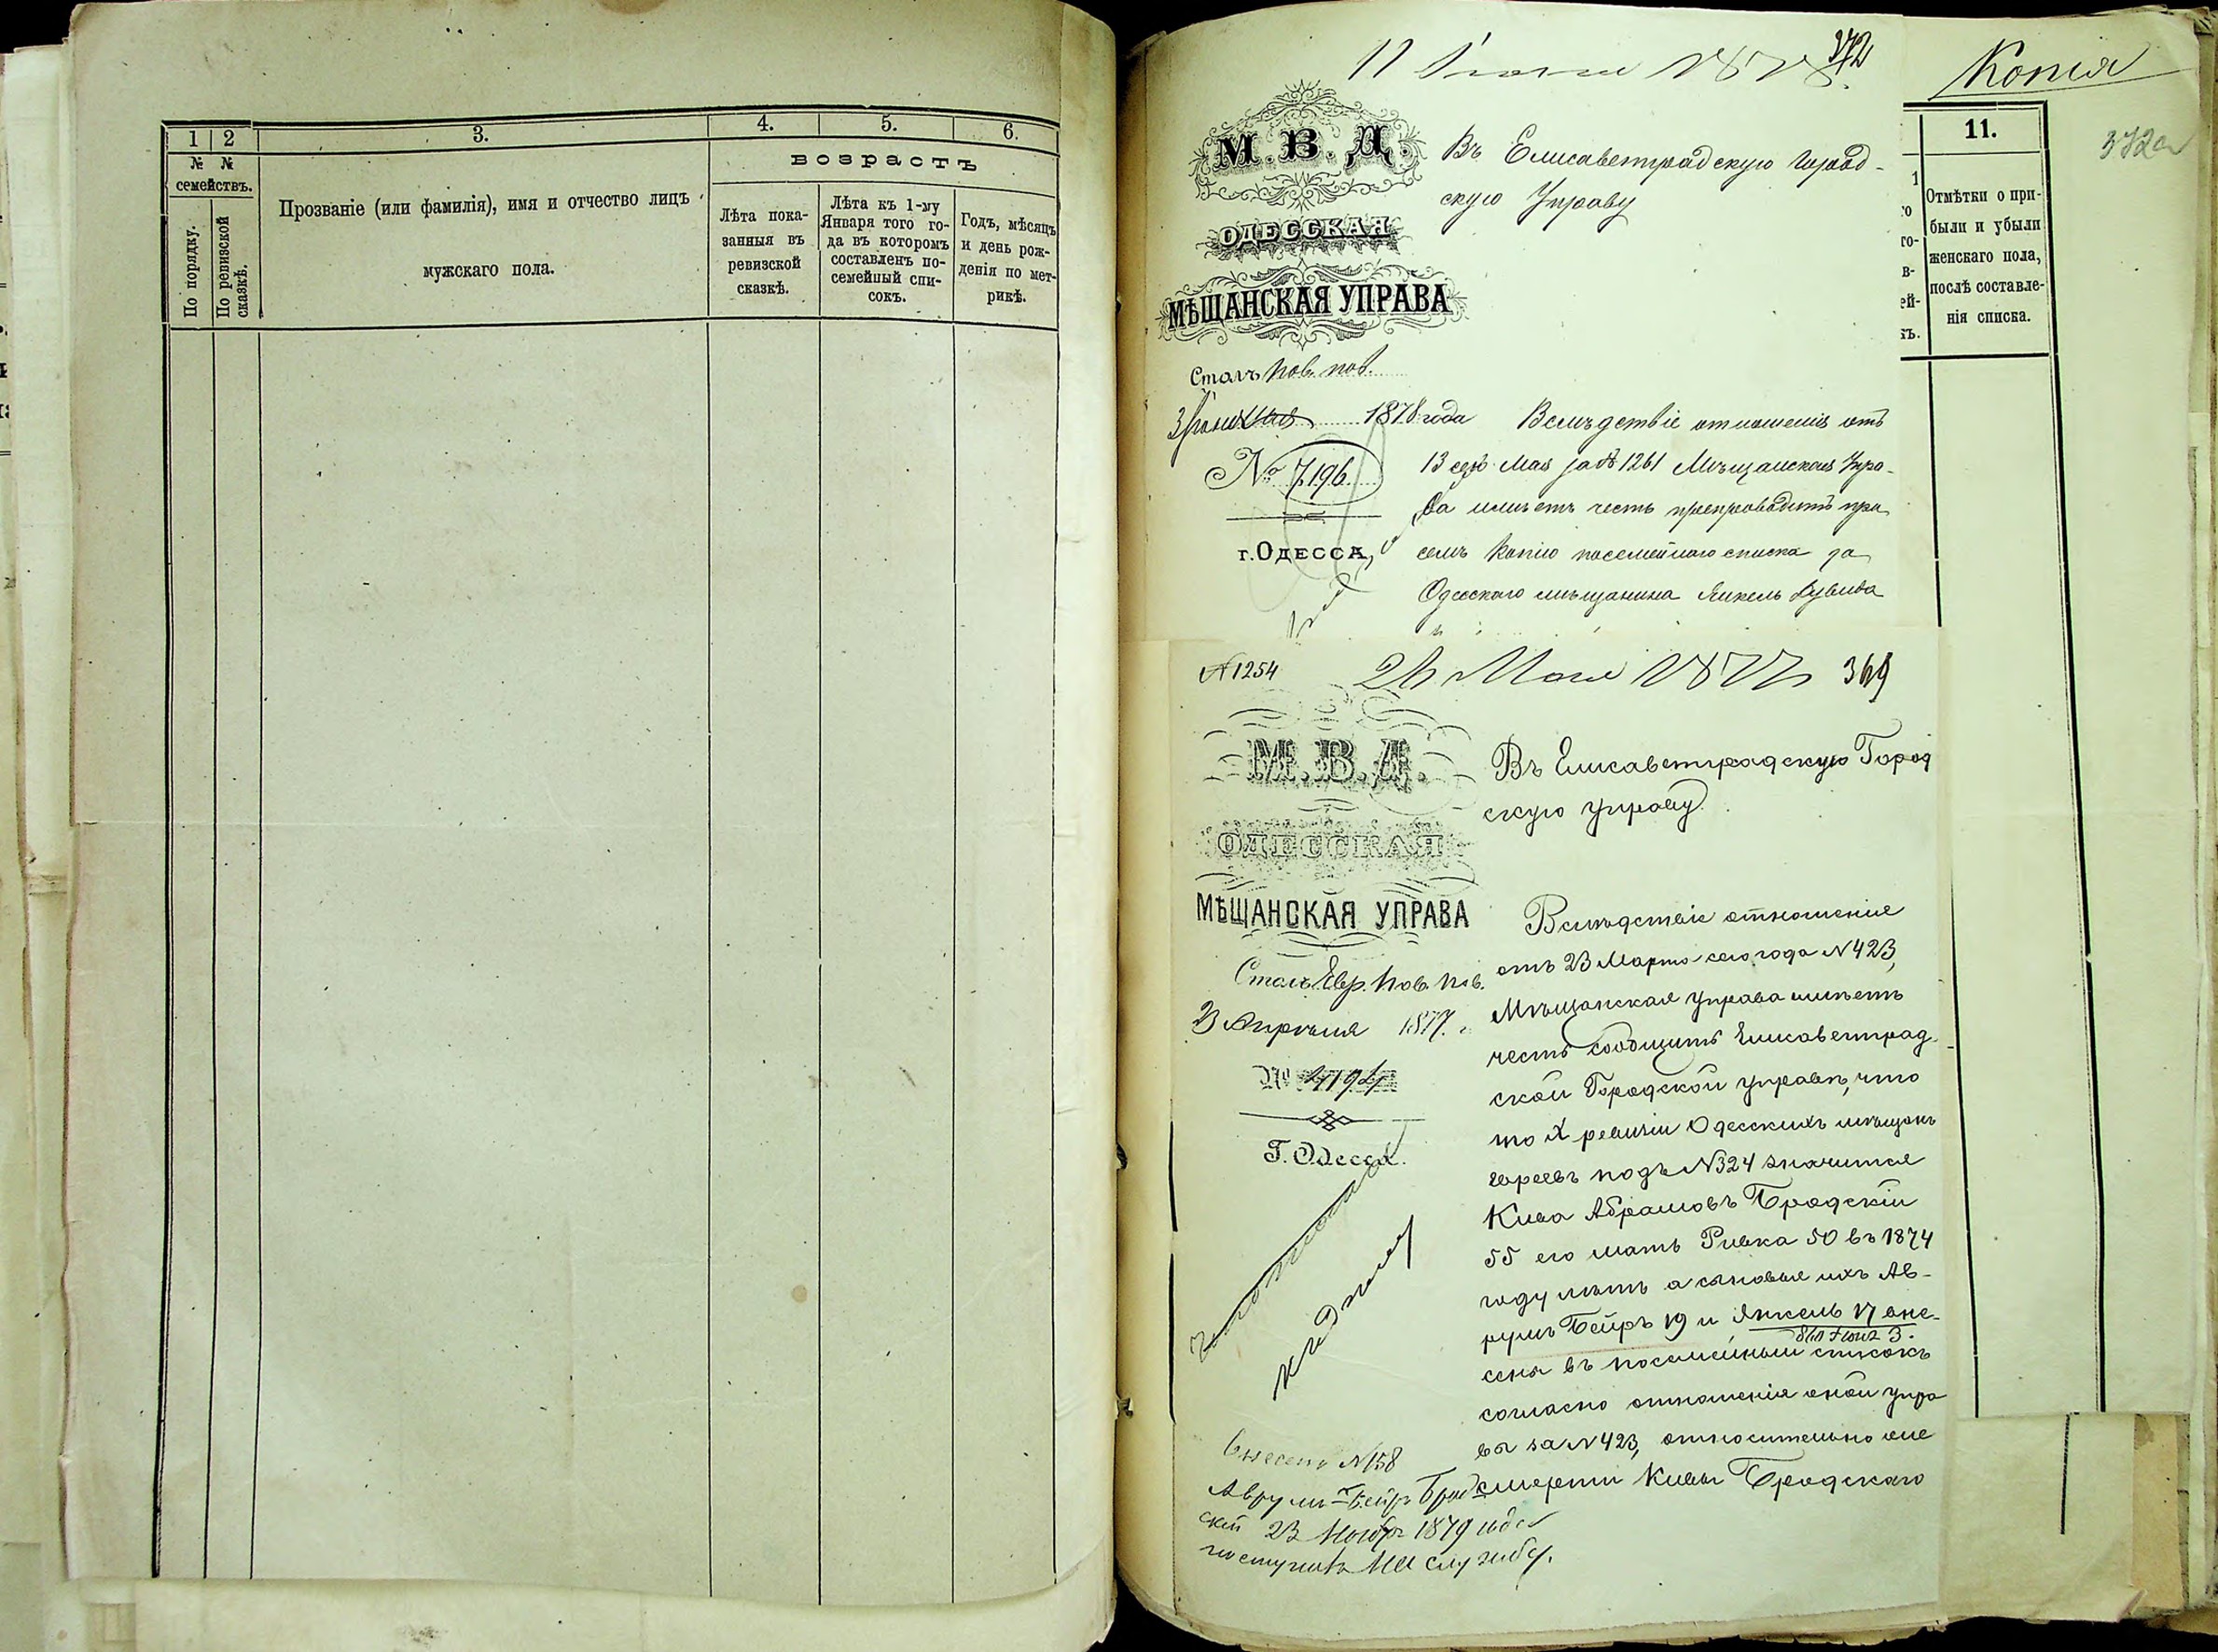 1 2 3. 4. 5. 6.
№ №
семействъ.
По порядку.
По ревизской сказкѣ.
Прозваніе (или фамилія), имя и отчество лицъ
мужскаго пола.
возрастъ
Лѣта пока-
занныя въ
ревизской
сказкѣ.
Лѣта къ 1-му
Января того го-
да въ которомъ
составленъ по-
семейный спи-
сокъ.
Годъ, мѣсяцъ
и день рож-
денія по мет-
рикѣ.
372
М. В. Д.
ОДЕССКАЯ
МѢЩАНСКАЯ УПРАВА
Столъ Нов. пов.
3 1878 года
№ 7196.
г. ОДЕССА,
Въ Елисаветградскую Город-
скую Управу
Вслѣдствіе отношенія отъ
13 сего Мая за № 1261 Мѣщанская Упра-
ва имѣетъ честь препроводить при
семъ копію посемейнаго списка за
Одесскаго мѣщанина Янкель
№ 1254
26 Мая 1877 369
М. В. Д.
ОДЕССКАЯ
МѢЩАНСКАЯ УПРАВА
Столъ Евр. Нов. пов.
23 Апрѣля 1877. г.
№ 4194
Г. Одесса.
Въ Елисаветградскую Город
скую управу.
Вслѣдствіе отношенія
отъ 23 Марта сего года № 423,
Мѣщанская управа имѣетъ
честь сообщить Елисаветград-
ской Городской управѣ, что
по X ревизіи Одесскихъ мѣщанъ
евреевъ подъ № 324 значится
Кива Абрамовъ Бродскій
55 его мать Ривка 50 въ 1874
году лѣтъ а сыновья ихъ Ав-
румъ Бейръ 19 и Янкель 17 вне-
сены въ посемейный списокъ
согласно отношенія оной упра
вы за № 423, относительно же
смерти Кивы Бродскаго
внесены № 158
Аврумъ-Бейръ Брод
скій 23 Ноябр 1879 года
поступилъ на службу.
Копія
372а
11.
Отмѣтки о при-
были и убыли
женскаго пола,
послѣ составле-
нія списка.